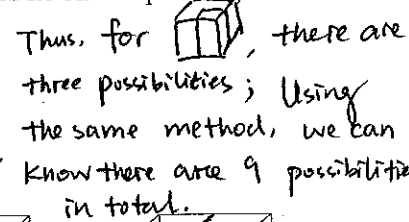 Thus, for , there are
three possibilities; Using
the same method, we can
know there are 9 possibilitie
in total.